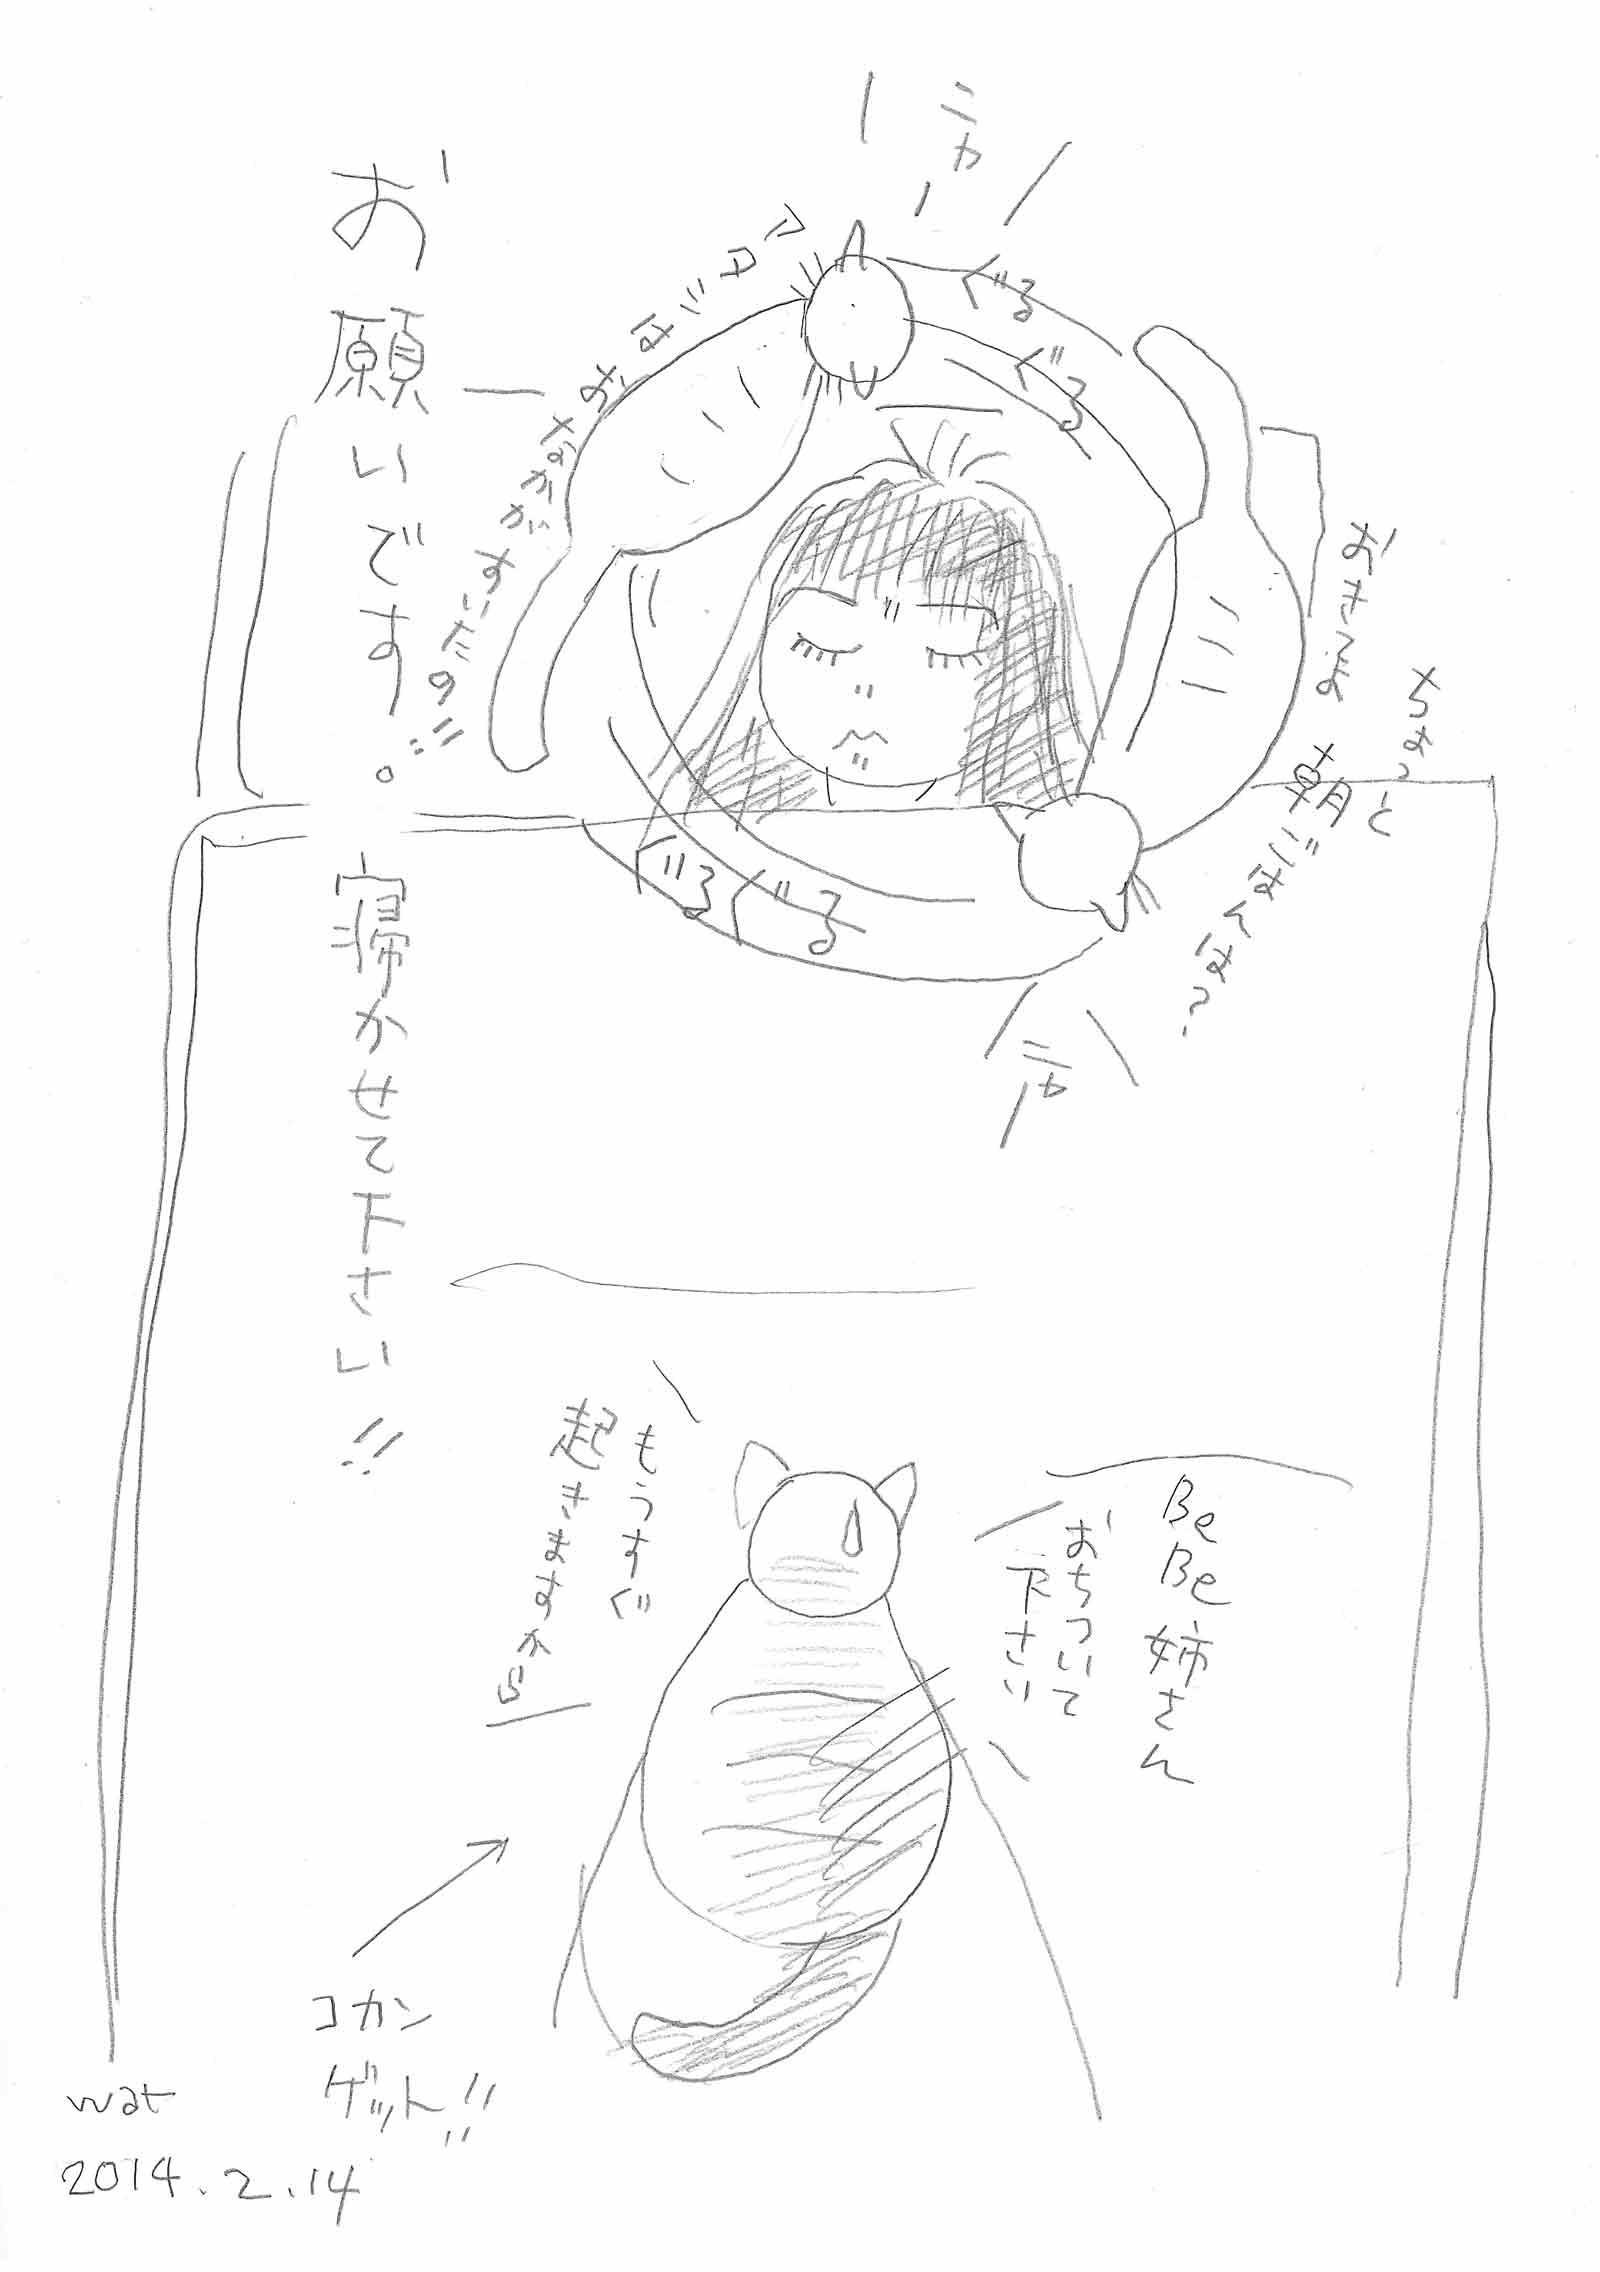 ニャー
ぐる
ぐる
アタシはおなかがすいたの!!
ちょっと
朝ごはんは?
ぐる
ぐる
ニャー
お願いです。
寝かせて下さい!!
BeBe姉さん
おちついて
下さい
もうすぐ
起きますから
コカン
ゲット!!
wat
2014.2.14